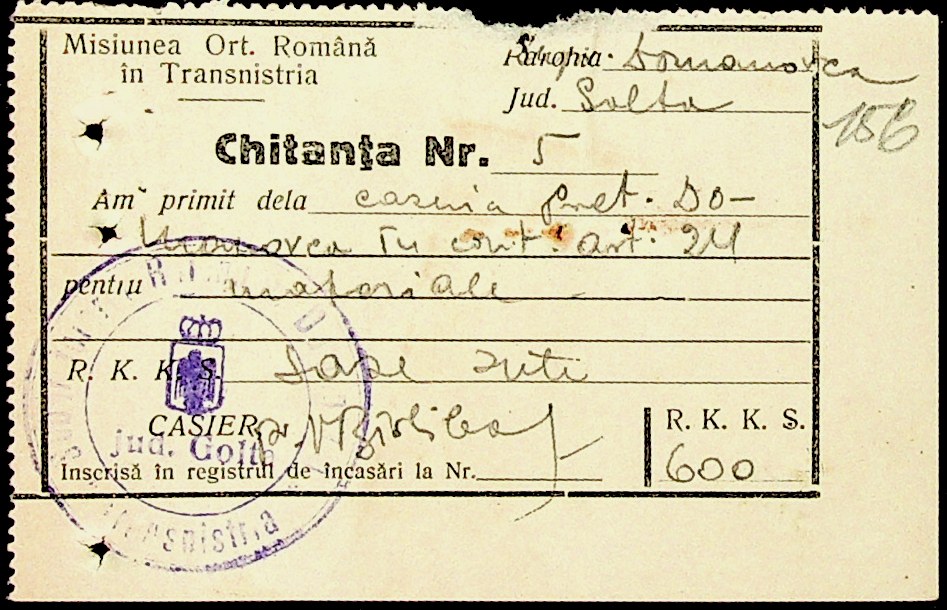 Misiunea Ort. Română
în Transnistria
Parohia. Domanovca
Jud. Golta
156
Chitanţa Nr. 5
Am primit dela casieria Pret. Do-
manovca în cont. art. 24
pentru materiale
R. K. K. S. Sase sute
CASIER,
Jud. Golta
R. K. K. S.
600
Inscrisă în registrul de încasări la Nr.
Transnistria